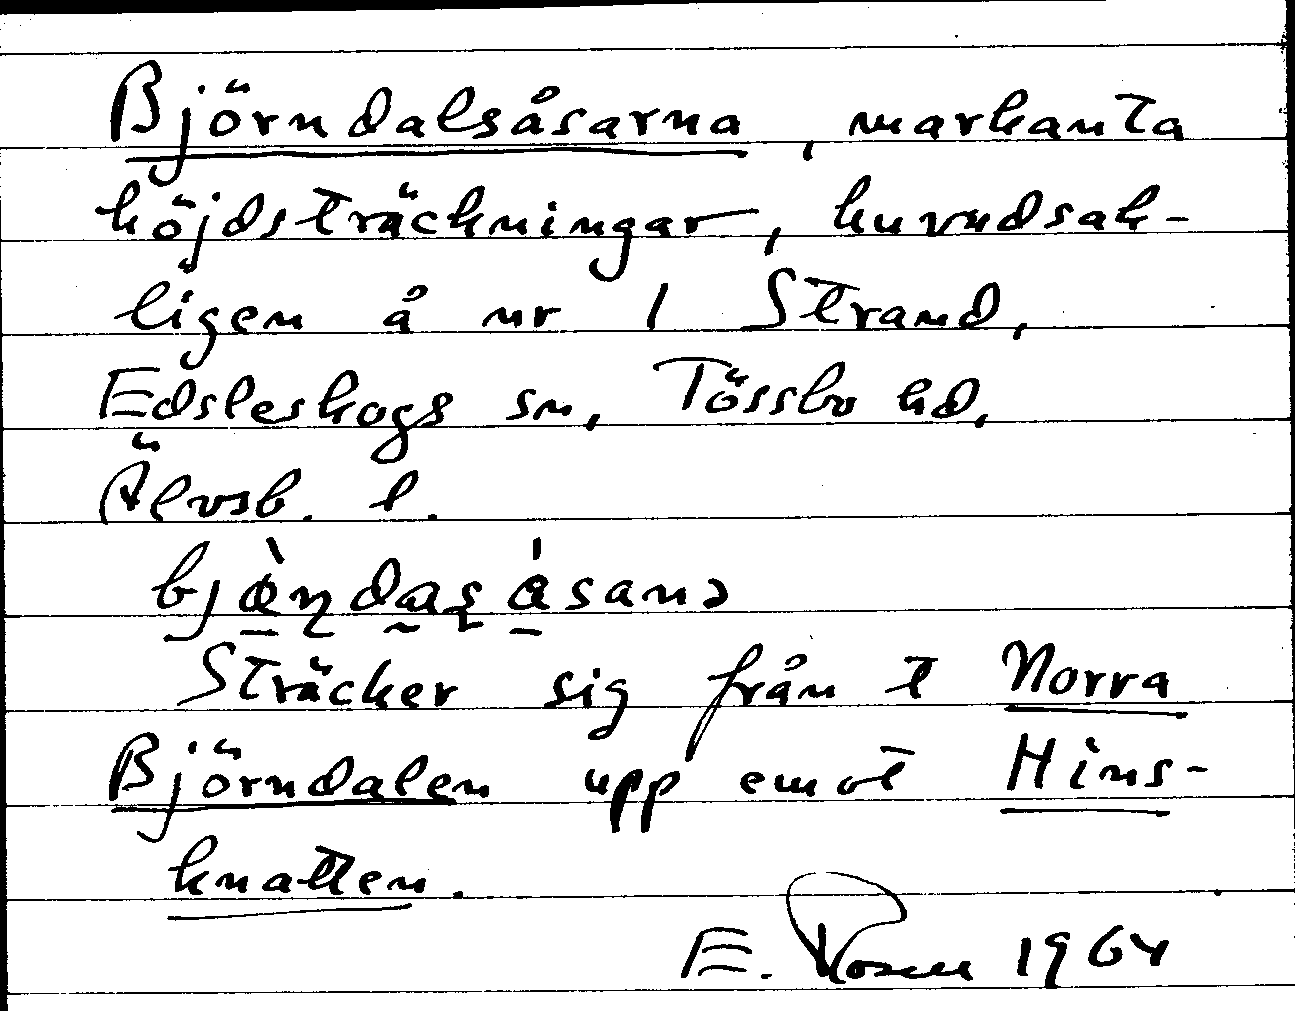 Björndalsåsarna, markanta
höjdsträckningar, huvudsak-
ligen å nr 1 Strand,
Edsleskogs sn, Tössbo hd,
Älvsb. l.
Sträcker sig från t Norra
Björndalen upp emot Hins-
knatten.
E. Rosell 1964